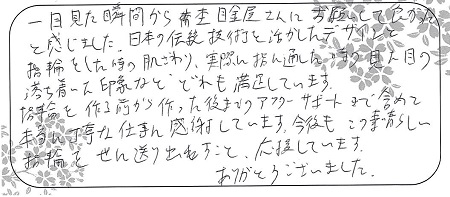 一目見た瞬間から杢目金屋さんにお願いして良かった
と感じました。日本の伝統技術を活かしたデザインと
指輪をした時の肌ざわり、実際に指に通した時の見た目の
落ち着いた印象など、どれも満足しています。
指輪を作る前から作った後までのアフターサポートまで含めて
本当に丁寧な仕事に感謝しています。今後もこの素晴らしい
指輪をぜひ送り出すこと、応援しています。
ありがとうございました。